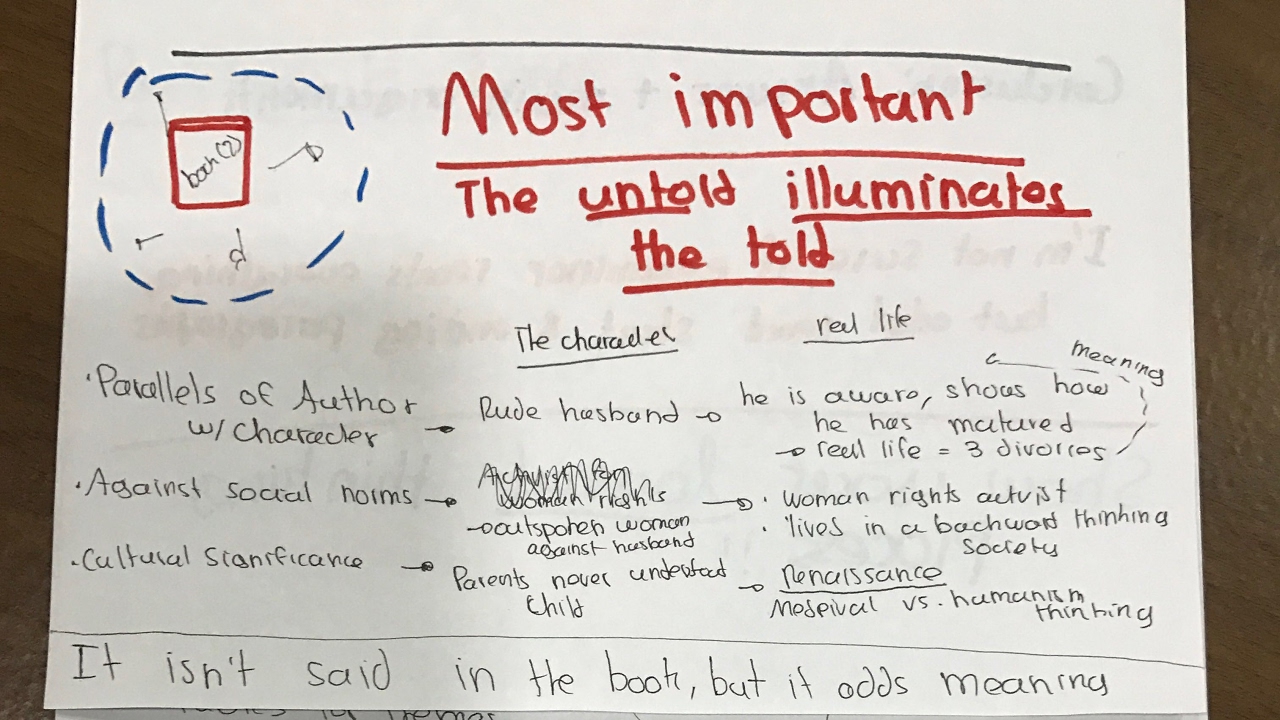 Most important
The untold illuminates
the told
book(2)
The character
real life
meaning
·Parallels of Author
w/ Character
Rude husband
he is aware, shows how
he has matured
real life = 3 divorces
·Against social norms
woman rights
outspoken woman
against husband
· woman rights activist
· lives in a backward thinking
society
·Cultural Significance
Parents never understood
child
Renaissance
vs. humanism
thinking
It isn't said in the book, but it adds meaning